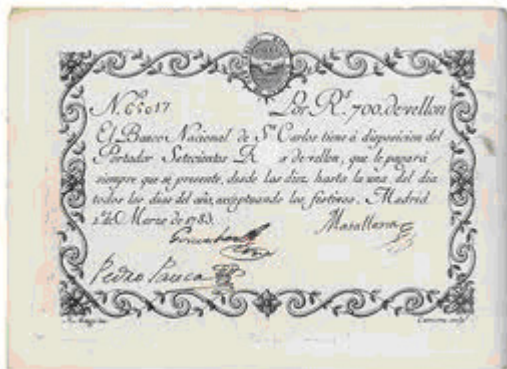 N. 6017
Por R.ˢ 700. de vellon
El Banco Nacional de S.ⁿ Carlos tiene á disposicion del
Portador Setecientos R s de vellon, que le pagará
siempre que se presente, desde las diez hasta la una del dia
todos los dias del año, exceptuando los festivos. Madrid
Marzo de 1783.
Pedro